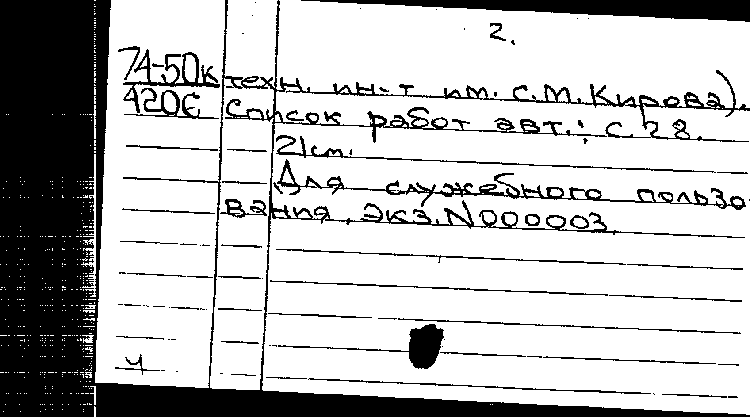 2.
74-50к техн. ин-т им. С.М.Кирова).
420с Список работ авт.: с.28.
21см.
Для служебного пользо-
вания. Экз.N000003.
ч